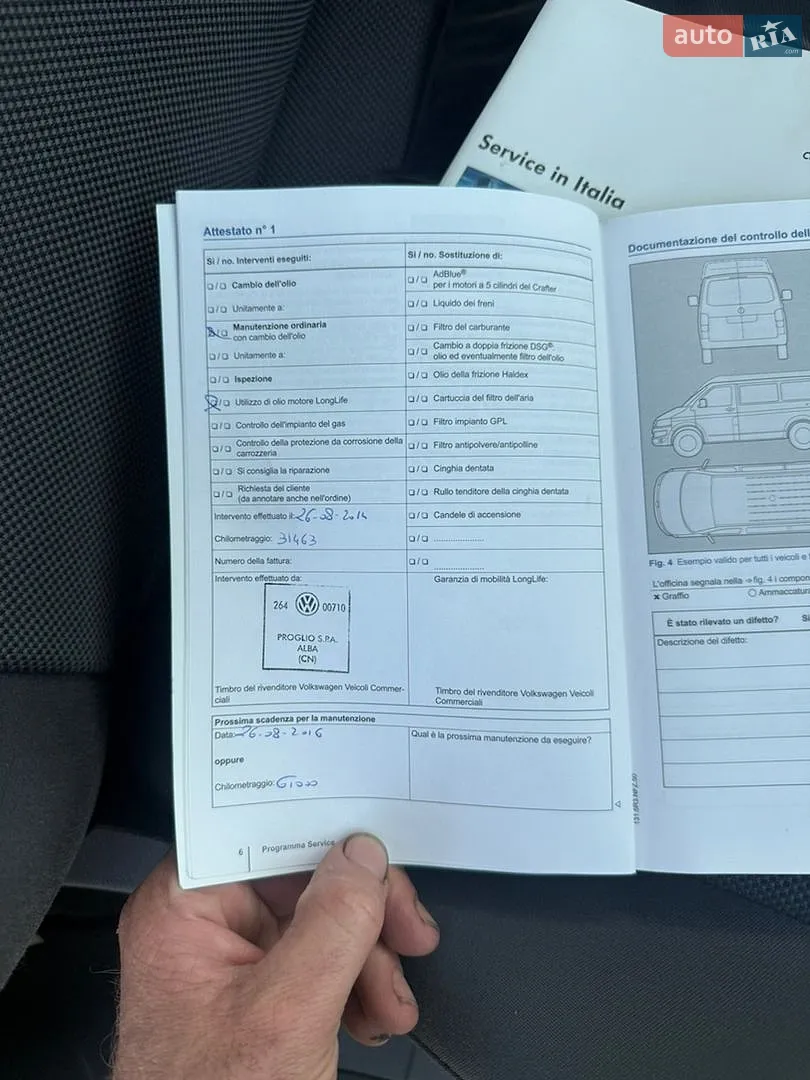 auto RIA
.com
Service in Italia
Attestato n° 1
Sì / no. Interventi eseguiti:
❑/❑ Cambio dell'olio
❑/❑ Unitamente a:
❑/❑ Manutenzione ordinaria
con cambio dell'olio
❑/❑ Unitamente a:
❑/❑ Ispezione
❑/❑ Utilizzo di olio motore LongLife
❑/❑ Controllo dell'impianto del gas
❑/❑ Controllo della protezione da corrosione della
carrozzeria
❑/❑ Si consiglia la riparazione
❑/❑ Richiesta del cliente
(da annotare anche nell'ordine)
Intervento effettuato il: 26-08-2014
Chilometraggio: 31463
Numero della fattura:
Intervento effettuato da:
264 00710
PROGLIO S.P.A.
ALBA
(CN)
Timbro del rivenditore Volkswagen Veicoli Commer-
ciali
Sì / no. Sostituzione di:
❑/❑ AdBlue®
per i motori a 5 cilindri del Crafter
❑/❑ Liquido dei freni
❑/❑ Filtro del carburante
❑/❑ Cambio a doppia frizione DSG®:
olio ed eventualmente filtro dell'olio
❑/❑ Olio della frizione Haldex
❑/❑ Cartuccia del filtro dell'aria
❑/❑ Filtro impianto GPL
❑/❑ Filtro antipolvere/antipolline
❑/❑ Cinghia dentata
❑/❑ Rullo tenditore della cinghia dentata
❑/❑ Candele di accensione
❑/❑ ......................
❑/❑ ......................
Garanzia di mobilità LongLife:
Timbro del rivenditore Volkswagen Veicoli
Commerciali
Prossima scadenza per la manutenzione
Data: 26-08-2016
oppure
Chilometraggio:
Qual è la prossima manutenzione da eseguire?
6 Programma Service
Documentazione del controllo dell
Fig. 4 Esempio valido per tutti i veicoli e
L'officina segnala nella ⇒ fig. 4 i compon
× Graffio ○ Ammaccatura
È stato rilevato un difetto? Sì
Descrizione del difetto: